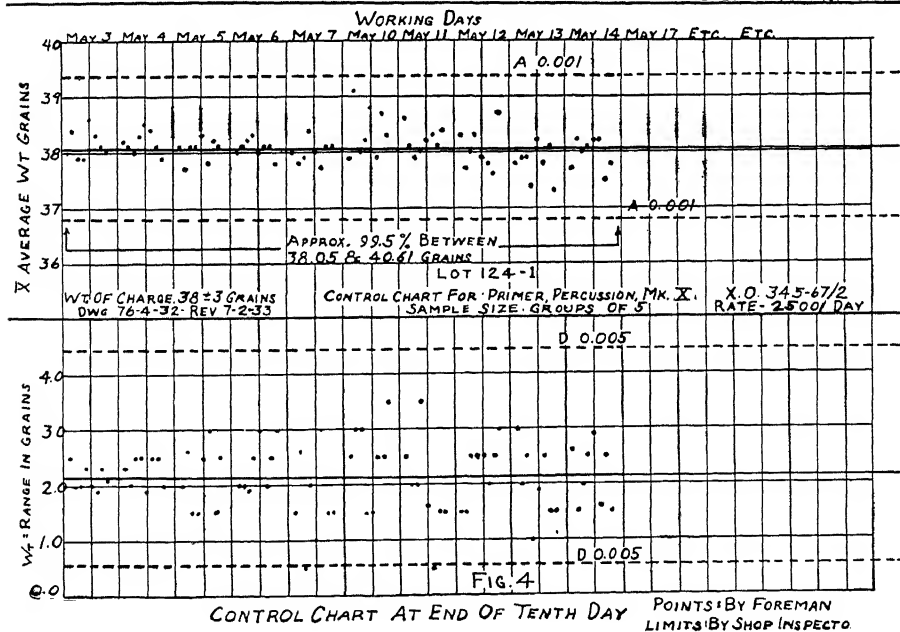 WORKING DAYS
MAY 3 MAY 4 MAY 5 MAY 6 MAY 7 MAY 10 MAY 11 MAY 12 MAY 13 MAY 14 MAY 17 ETC. ETC.
40
A 0.001
39
38
37
A 0.001
36
X̄ AVERAGE WT GRAINS
APPROX. 99.5% BETWEEN
38.05 & 40.61 GRAINS
LOT 124-1
WT OF CHARGE. 38 ±3 GRAINS
DWG 76-4-32. REV 7-2-33
CONTROL CHART FOR PRIMER, PERCUSSION, MK. X.
SAMPLE SIZE. GROUPS OF 5
X.O. 345-67/2
RATE- 2500/ DAY
D 0.005
4.0
3.0
2.0
1.0
0.0
WT = RANGE IN GRAINS
D 0.005
FIG. 4
CONTROL CHART AT END OF TENTH DAY
POINTS: BY FOREMAN
LIMITS: BY SHOP INSPECTO